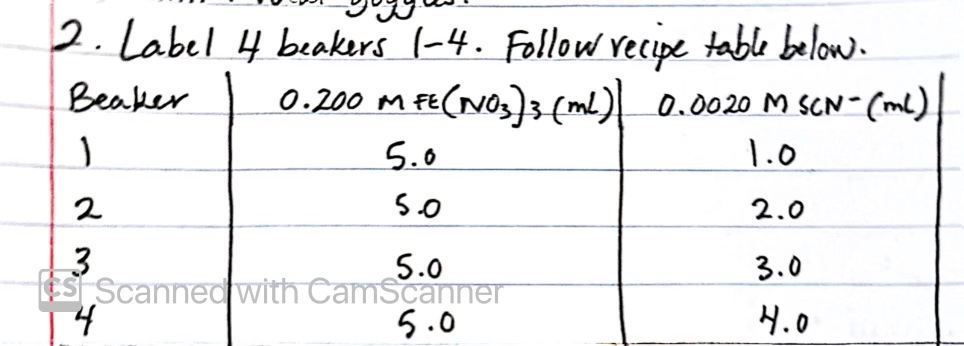 2. Label 4 beakers 1-4. Follow recipe table below.
Beaker 0.200 M FE(NO3)3 (mL) 0.0020 M SCN- (mL)
1 5.0 1.0
2 5.0 2.0
3 5.0 3.0
CS Scanned with CamScanner
4 5.0 4.0